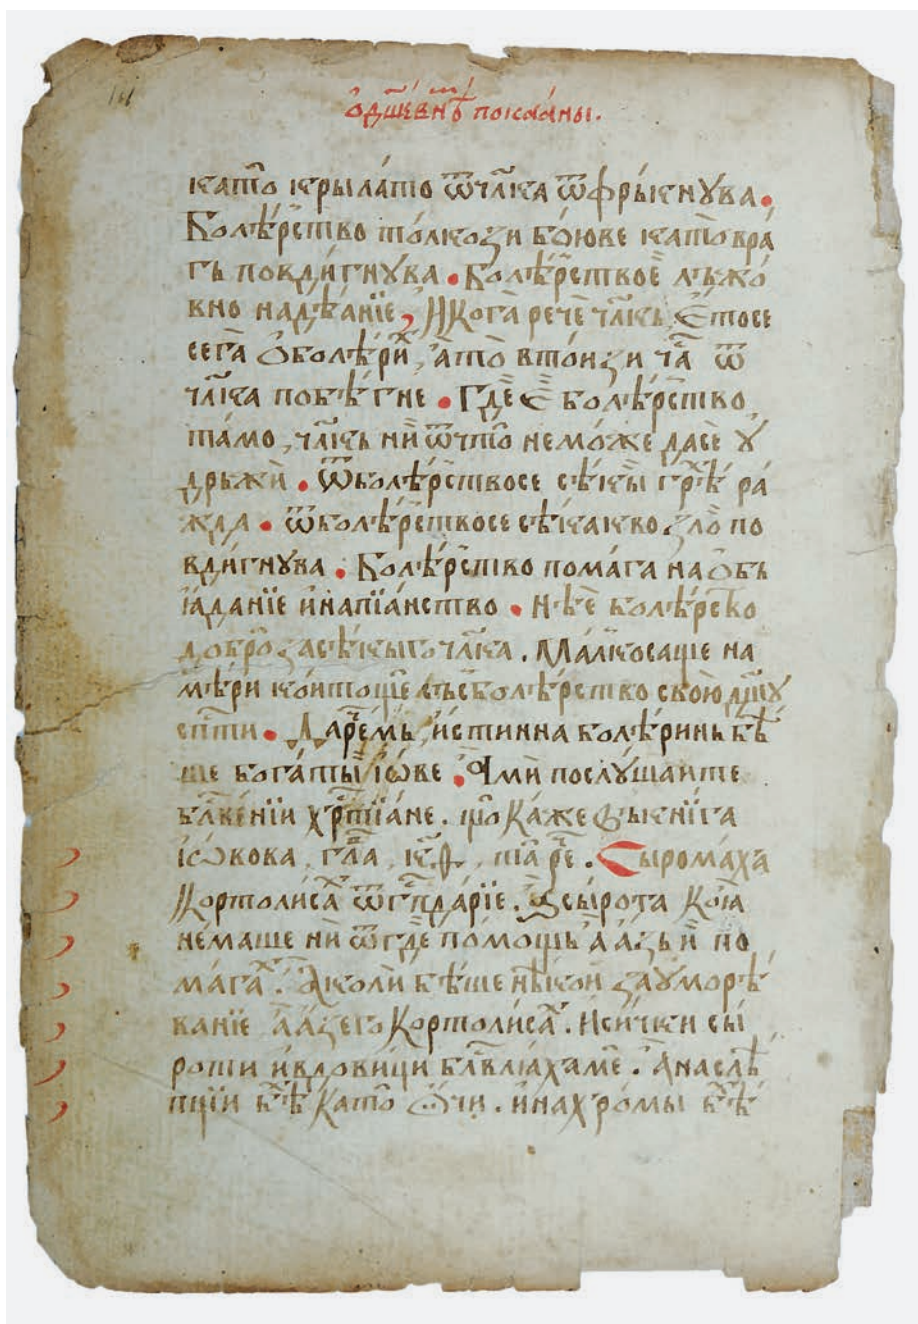 ѽдш҃евнѣ покаа́ны.
като крыла́то ѿчл҃ка ѿфры́кнꙋва.
Болѣ́рство то́лкози бо́юве като вра́
гь повди́гнꙋва. Болѣ́рствое лъжо́
вно надѣ́анїе, И кога̀ речѐ чл҃кь, є́тосе
сега̀ ѻболѣрѝ, а҆то̀ втоизи ча ѿ
чл҃ка побѣ́гне. Где є҆ болѣ́рство
та́мо, чл҃кь нѝ ѿчто немо́же дасѐ ꙋ
дръжѝ. Ѿболѣ́рствосе сѣ́кы грѣ ра́
жда. ѿболѣ́рствосе сѣ́какво зло̀ по
вди́гнꙋва. Болѣ́рство пома́га на ѻбь
ꙗда́нїе и҆напїа́нство. Нѣѐ болѣ́рсво
добро̀ за сѣ́кыго чл҃ка. Ма́лкосаще на
мѣ́ри коитоще съсболѣ́рство свою̀ дш҃ꙋ
спⷭ҇ти. Да рече́мь, и҆стинна болѣ́ринь бѣ́
ше бога́тый і҆ѡ́ве. Ами̏ послꙋ́шаите
бл҃ве́нїи хрⷭ҇тїа́не. що ка́же ѹ҆ кни́га
і҆ѡ́вова, гла҃, к҃ѳ, та рѐ. Сырома́ха
кортолиса́х ѿ гпⷭ҇да́рїе. Ѹ҆ сы́рота коѧ̀
не́маше ни ѿгде̏ по́мощь а҆ а҆́зь ѝ по
ма́гах. Ако́ли бѣ́ше нѣ́кой за ꙋ҆морѣ́
ванїе а҆ а҆́зего кортолиса́х. И си́чки сы́
роти и҆вдови́ци бл҃влꙗ́хаме. А҆ наслѣ
пцїи бѣ́х като ѻ҆́чи. и҆ нахро́мы бѣ́х